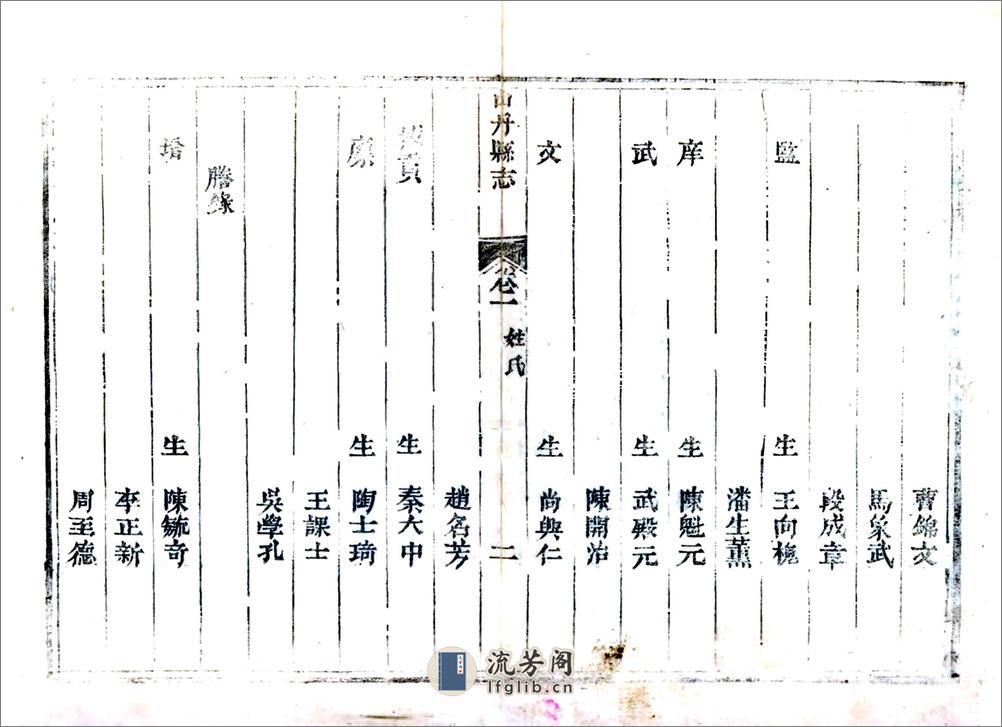 曹錦文
馬象武
段成章
監 生 王向槐
潘生薰
庠 生 陳魁元
武 生 武殿元
陳開治
文 生 尚興仁
山丹縣志 卷一 姓氏 二
趙名芳
貢 生 秦大中
廩 生 陶士琦
王課士
吳學孔
謄錄
增 生 陳毓奇
李正新
周至德
流芳阁
lfglib.cn